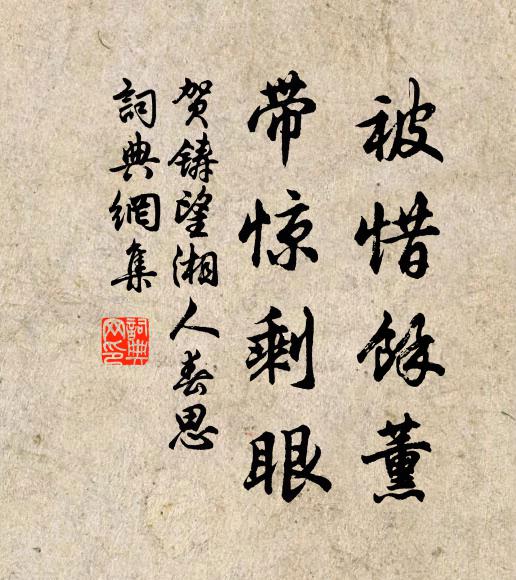 被惜餘薰
带惊剩眼
贺铸望湘人春思
詞典網集
詞典網印